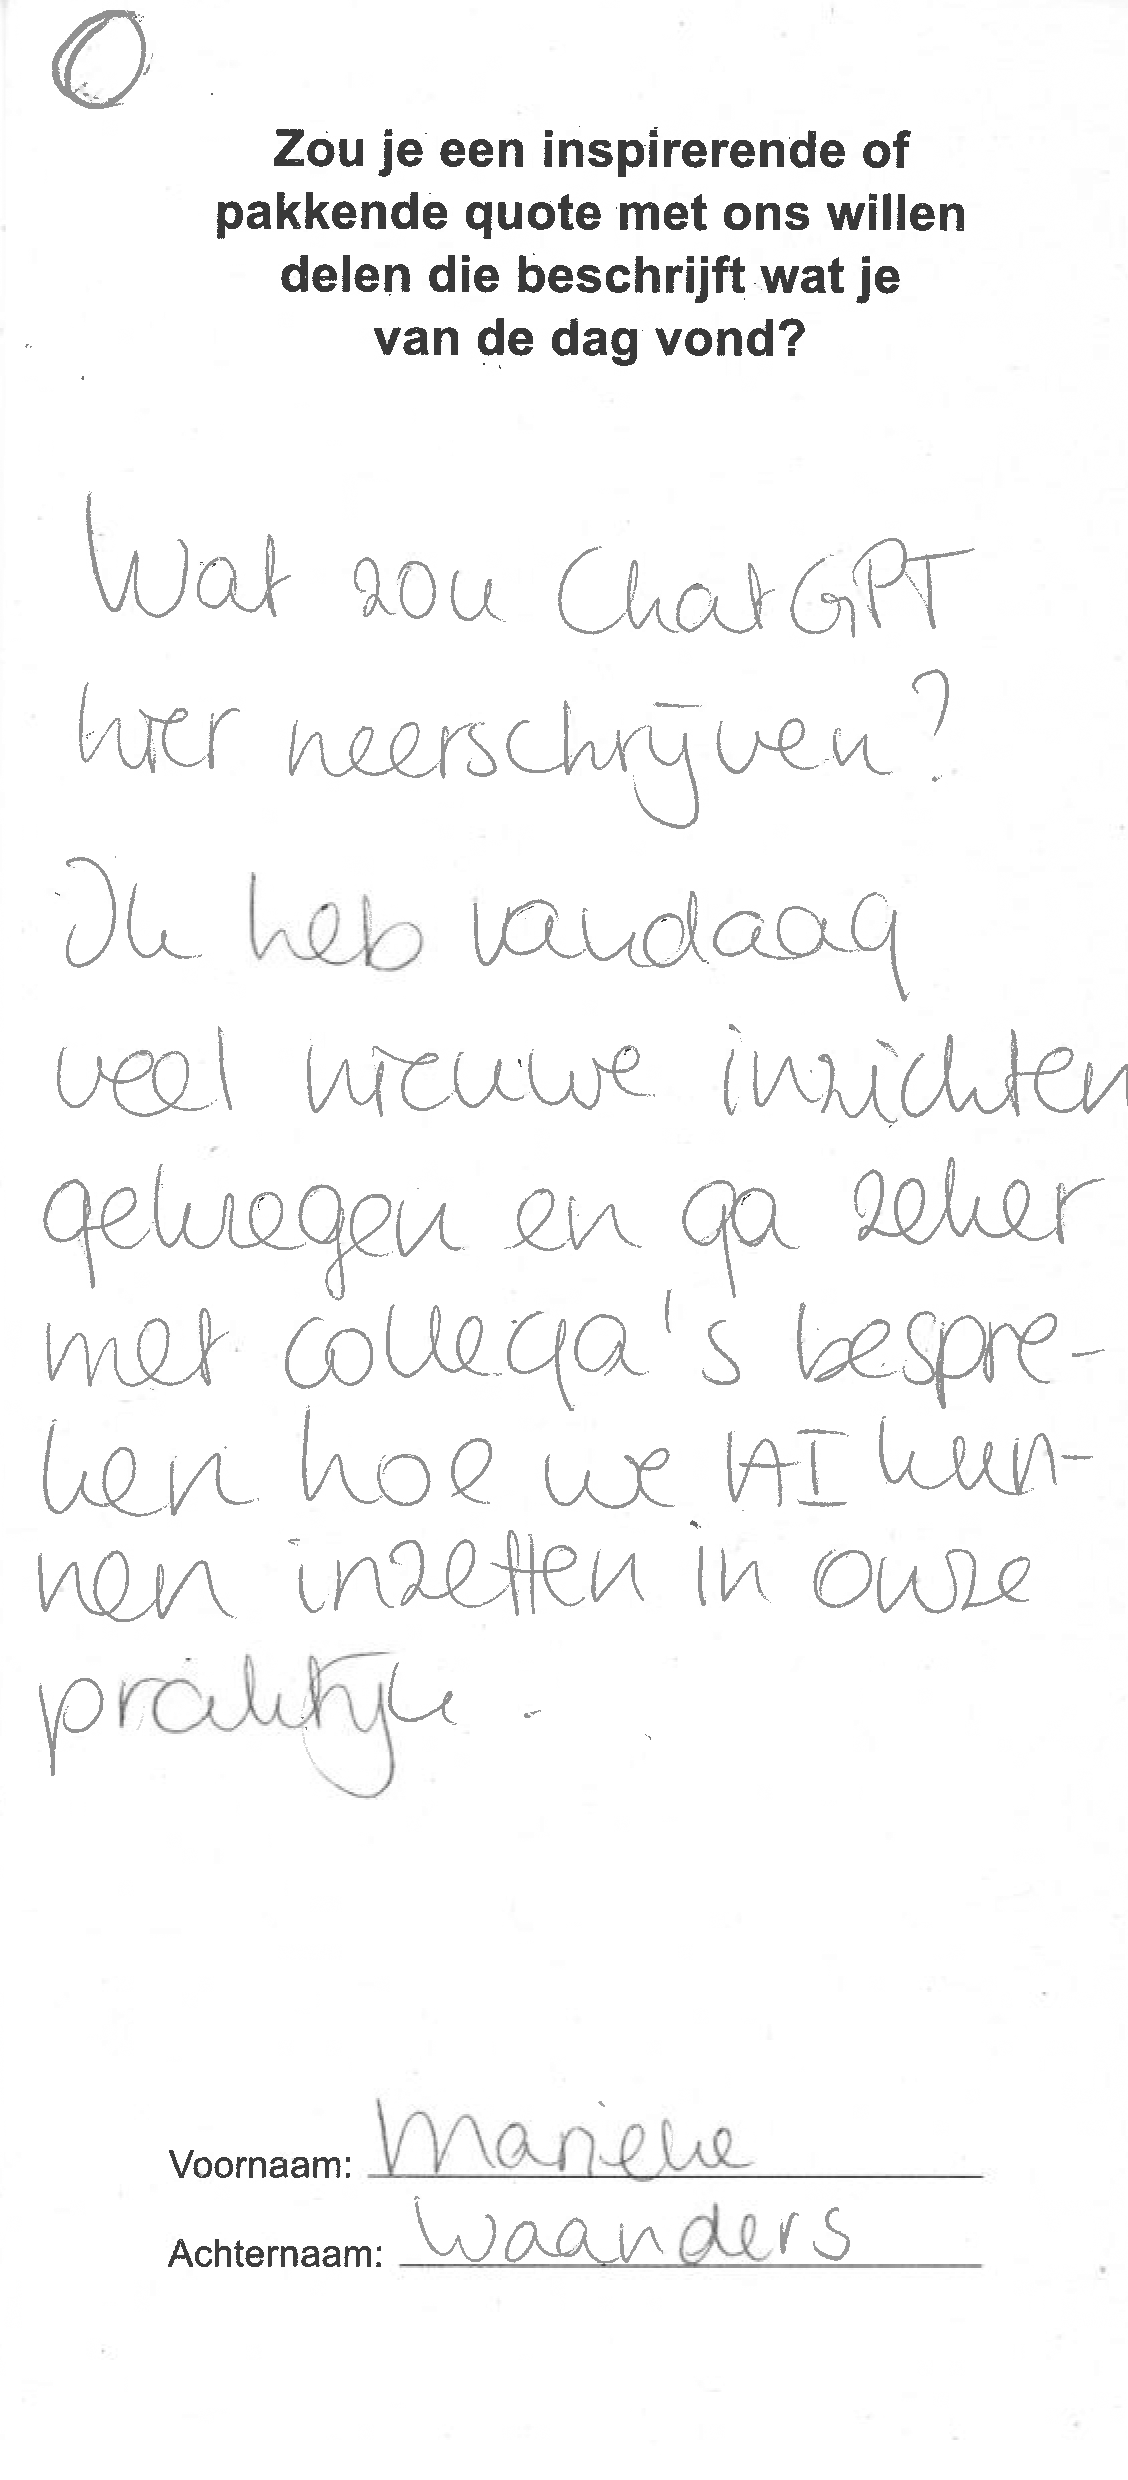 Zou je een inspirerende of
pakkende quote met ons willen
delen die beschrijft wat je
van de dag vond?
Wat zou ChatGPT
hier neerschrijven?
Ik heb vandaag
veel nieuwe inzichten
gekregen en ga zeker
met collega's bespre-
ken hoe we AI kun-
nen inzetten in onze
praktijk.
Voornaam: Marieke
Achternaam: Waanders